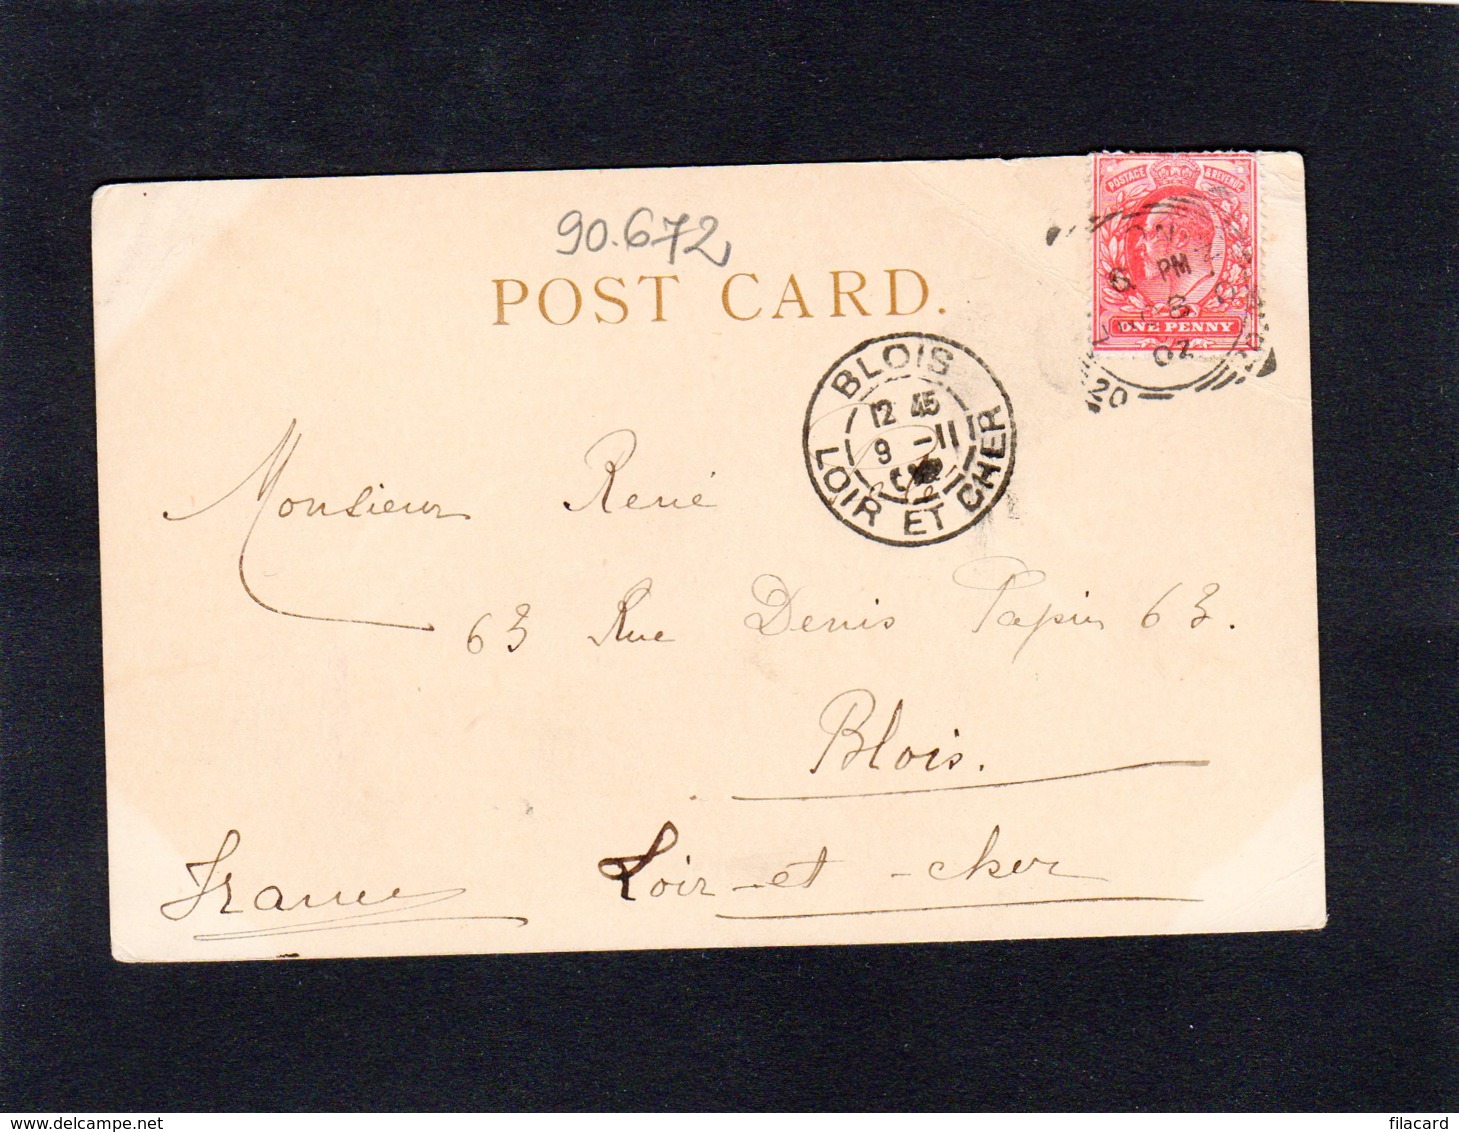 90.672
POST CARD.
POSTAGE & REVENUE
ONE PENNY
PM
8
02
20
BLOIS
12 45
9 -11
LOIR ET CHER
Monsieur René
63 Rue Denis Papin 63.
Blois.
France Loir-et-cher
filacard
www.delcampe.net